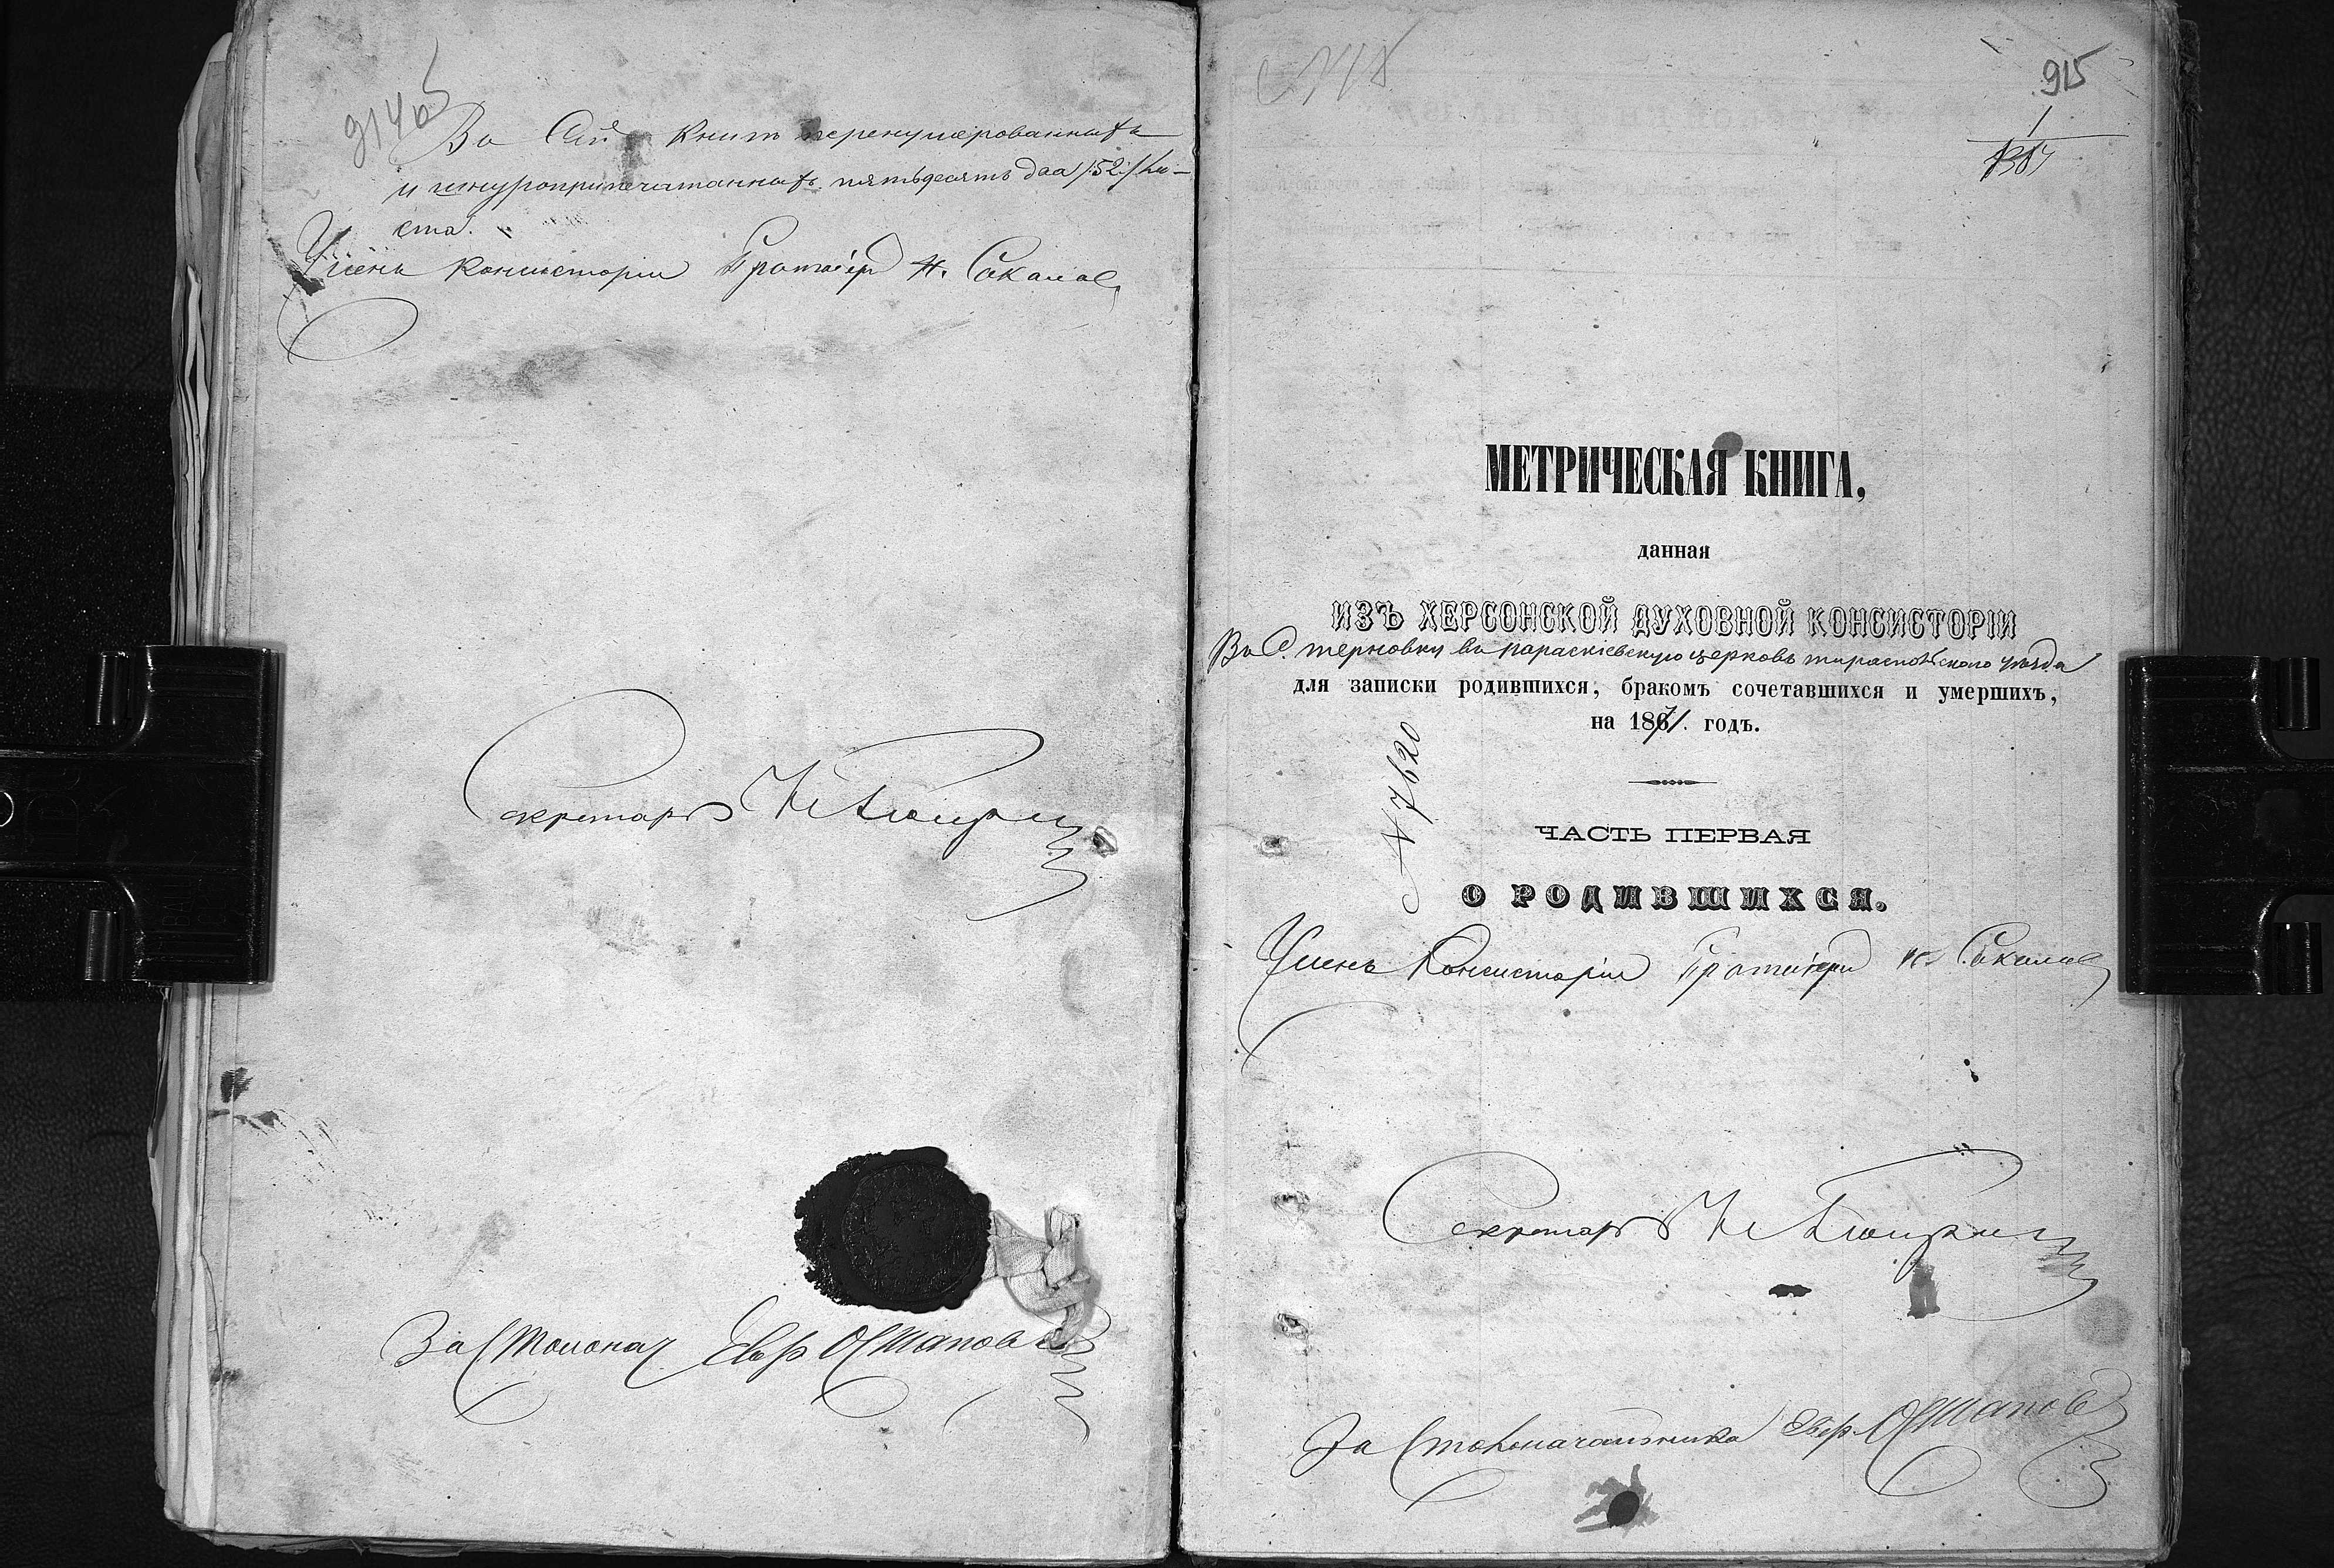 914об
Въ Сей Книгѣ перенумерованныхъ
и шнуроприпечатанныхъ пятьдесятъ два /:52:/ ли-
ста.
Членъ Консисторіи Протоіерей Н. Соколовъ
Секретарь
За Столонач Евф Остапов
915
1
МЕТРИЧЕСКАЯ КНИГА,
данная
ИЗЪ ХЕРСОНСКОЙ ДУХОВНОЙ КОНСИСТОРІИ
Въ С. терновку въ параскіевскую церковь тираспольского уѣзда
для записки родившихся, бракомъ сочетавшихся и умершихъ,
на 1871. годъ.
N 7620
ЧАСТЬ ПЕРВАЯ
О РОДИВШИХСЯ.
Членъ Консисторіи Протоіерей Н. Соколовъ
Секретарь
За Столоначальника Евф. Остапов